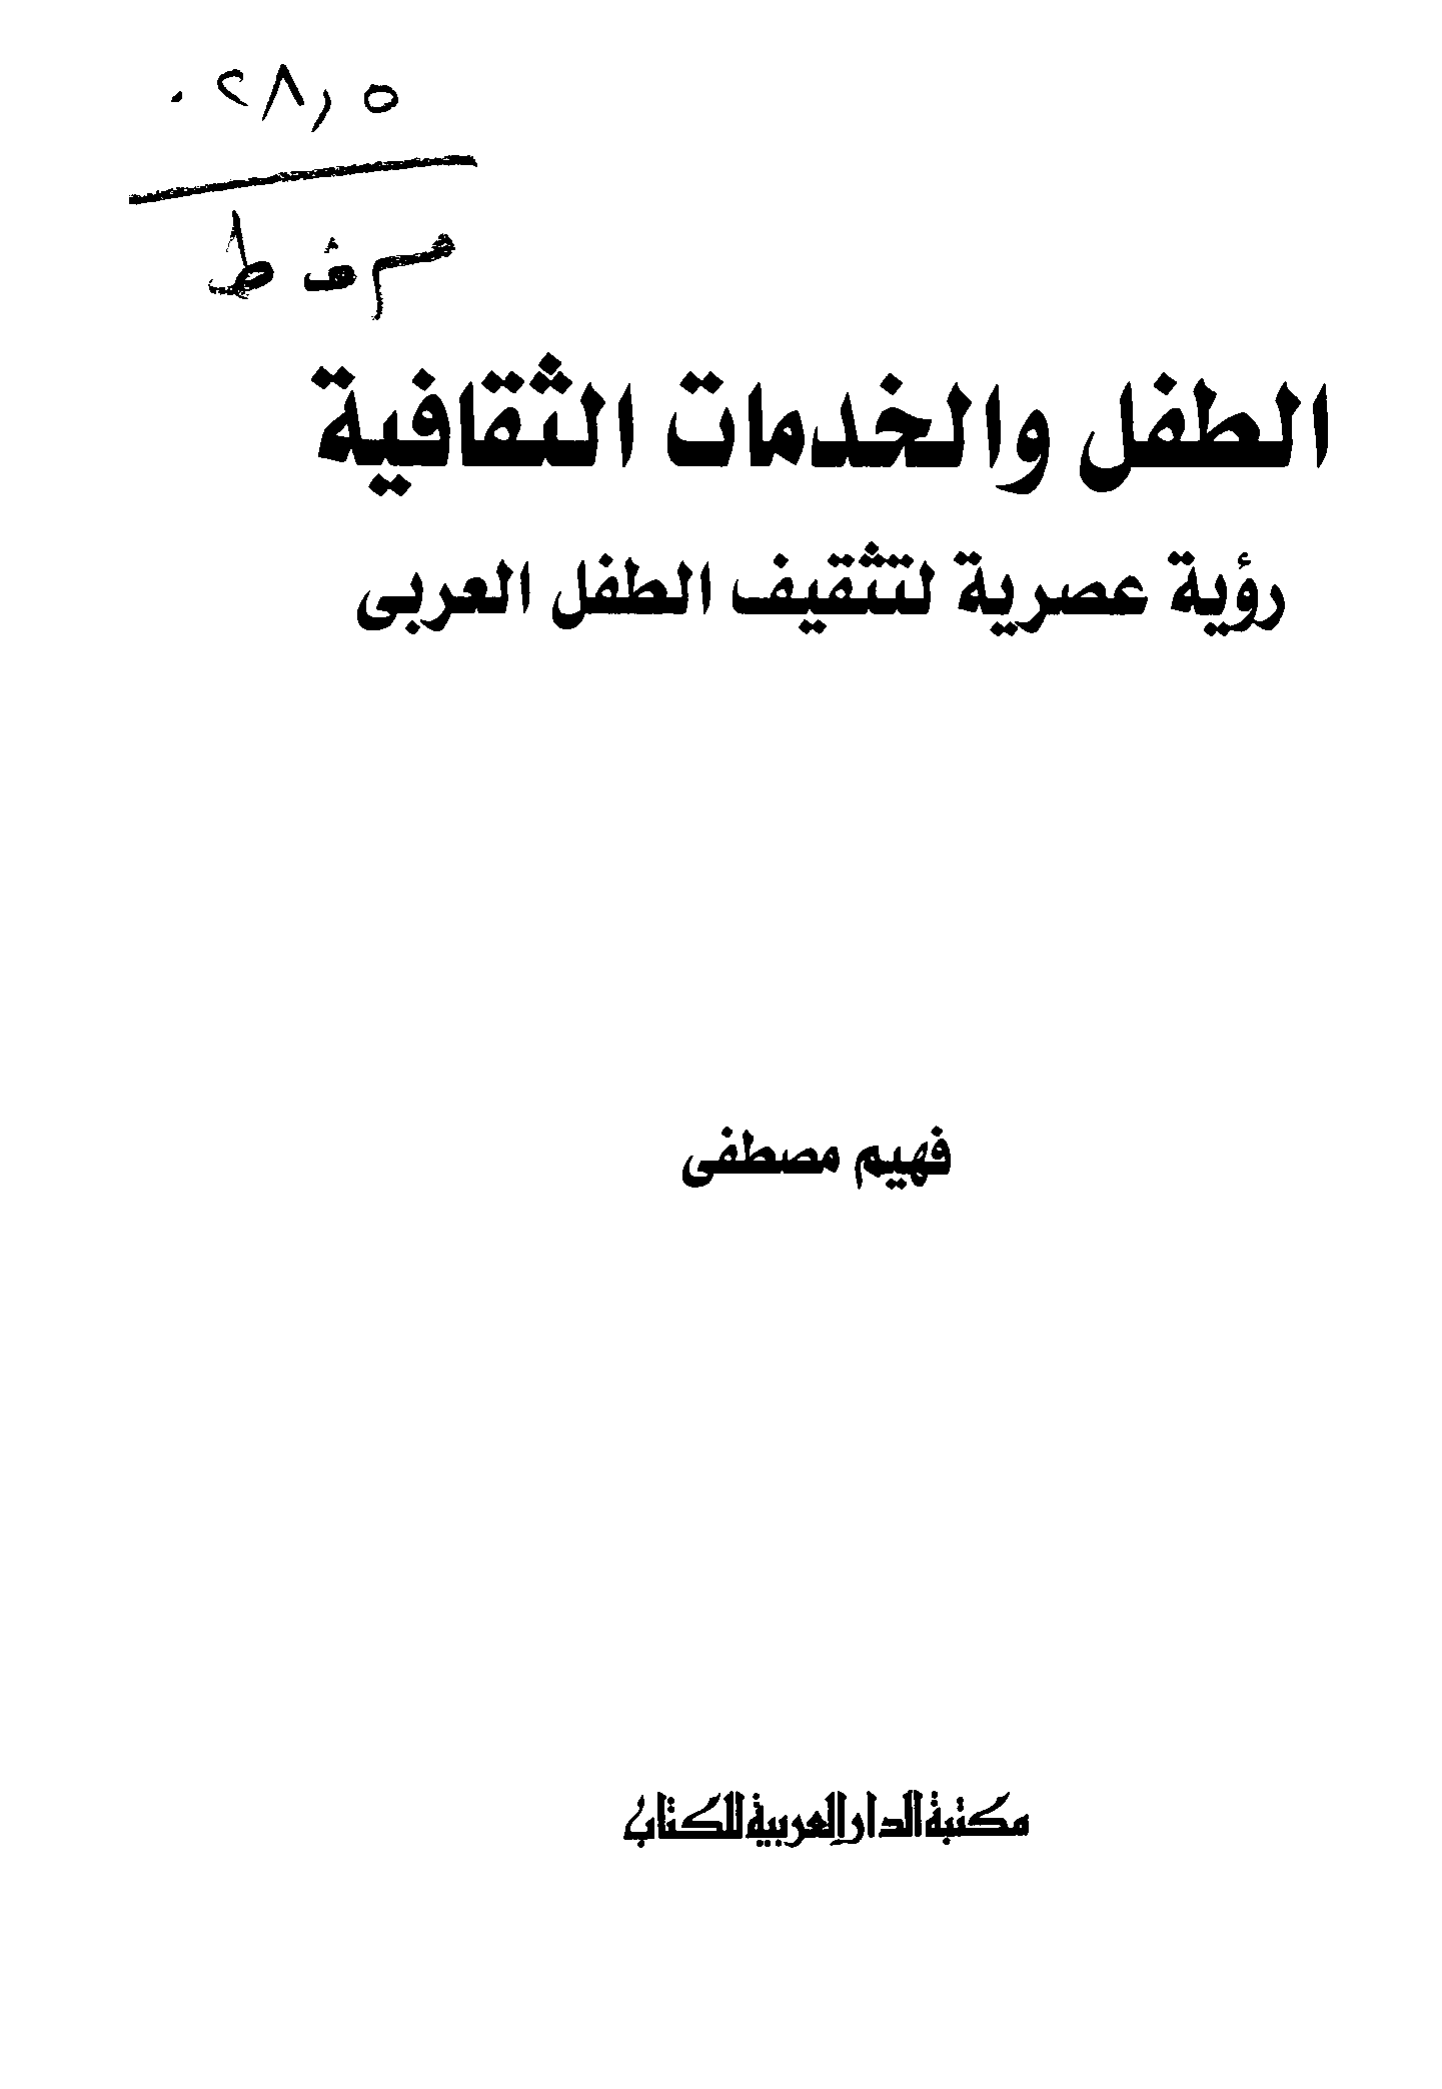 ٠٢٨,٥
م ف ط
الطفل والخدمات الثقافية
رؤية عصرية لتثقيف الطفل العربى
فهيم مصطفى
مكتبة الدار العربية للكتاب